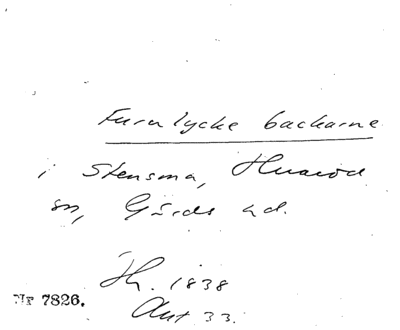 Furulycke backarne
i Stensma, Huaröd
sn, Gärds hd.
Th. 1838
Akt 33.
Nr 7826.